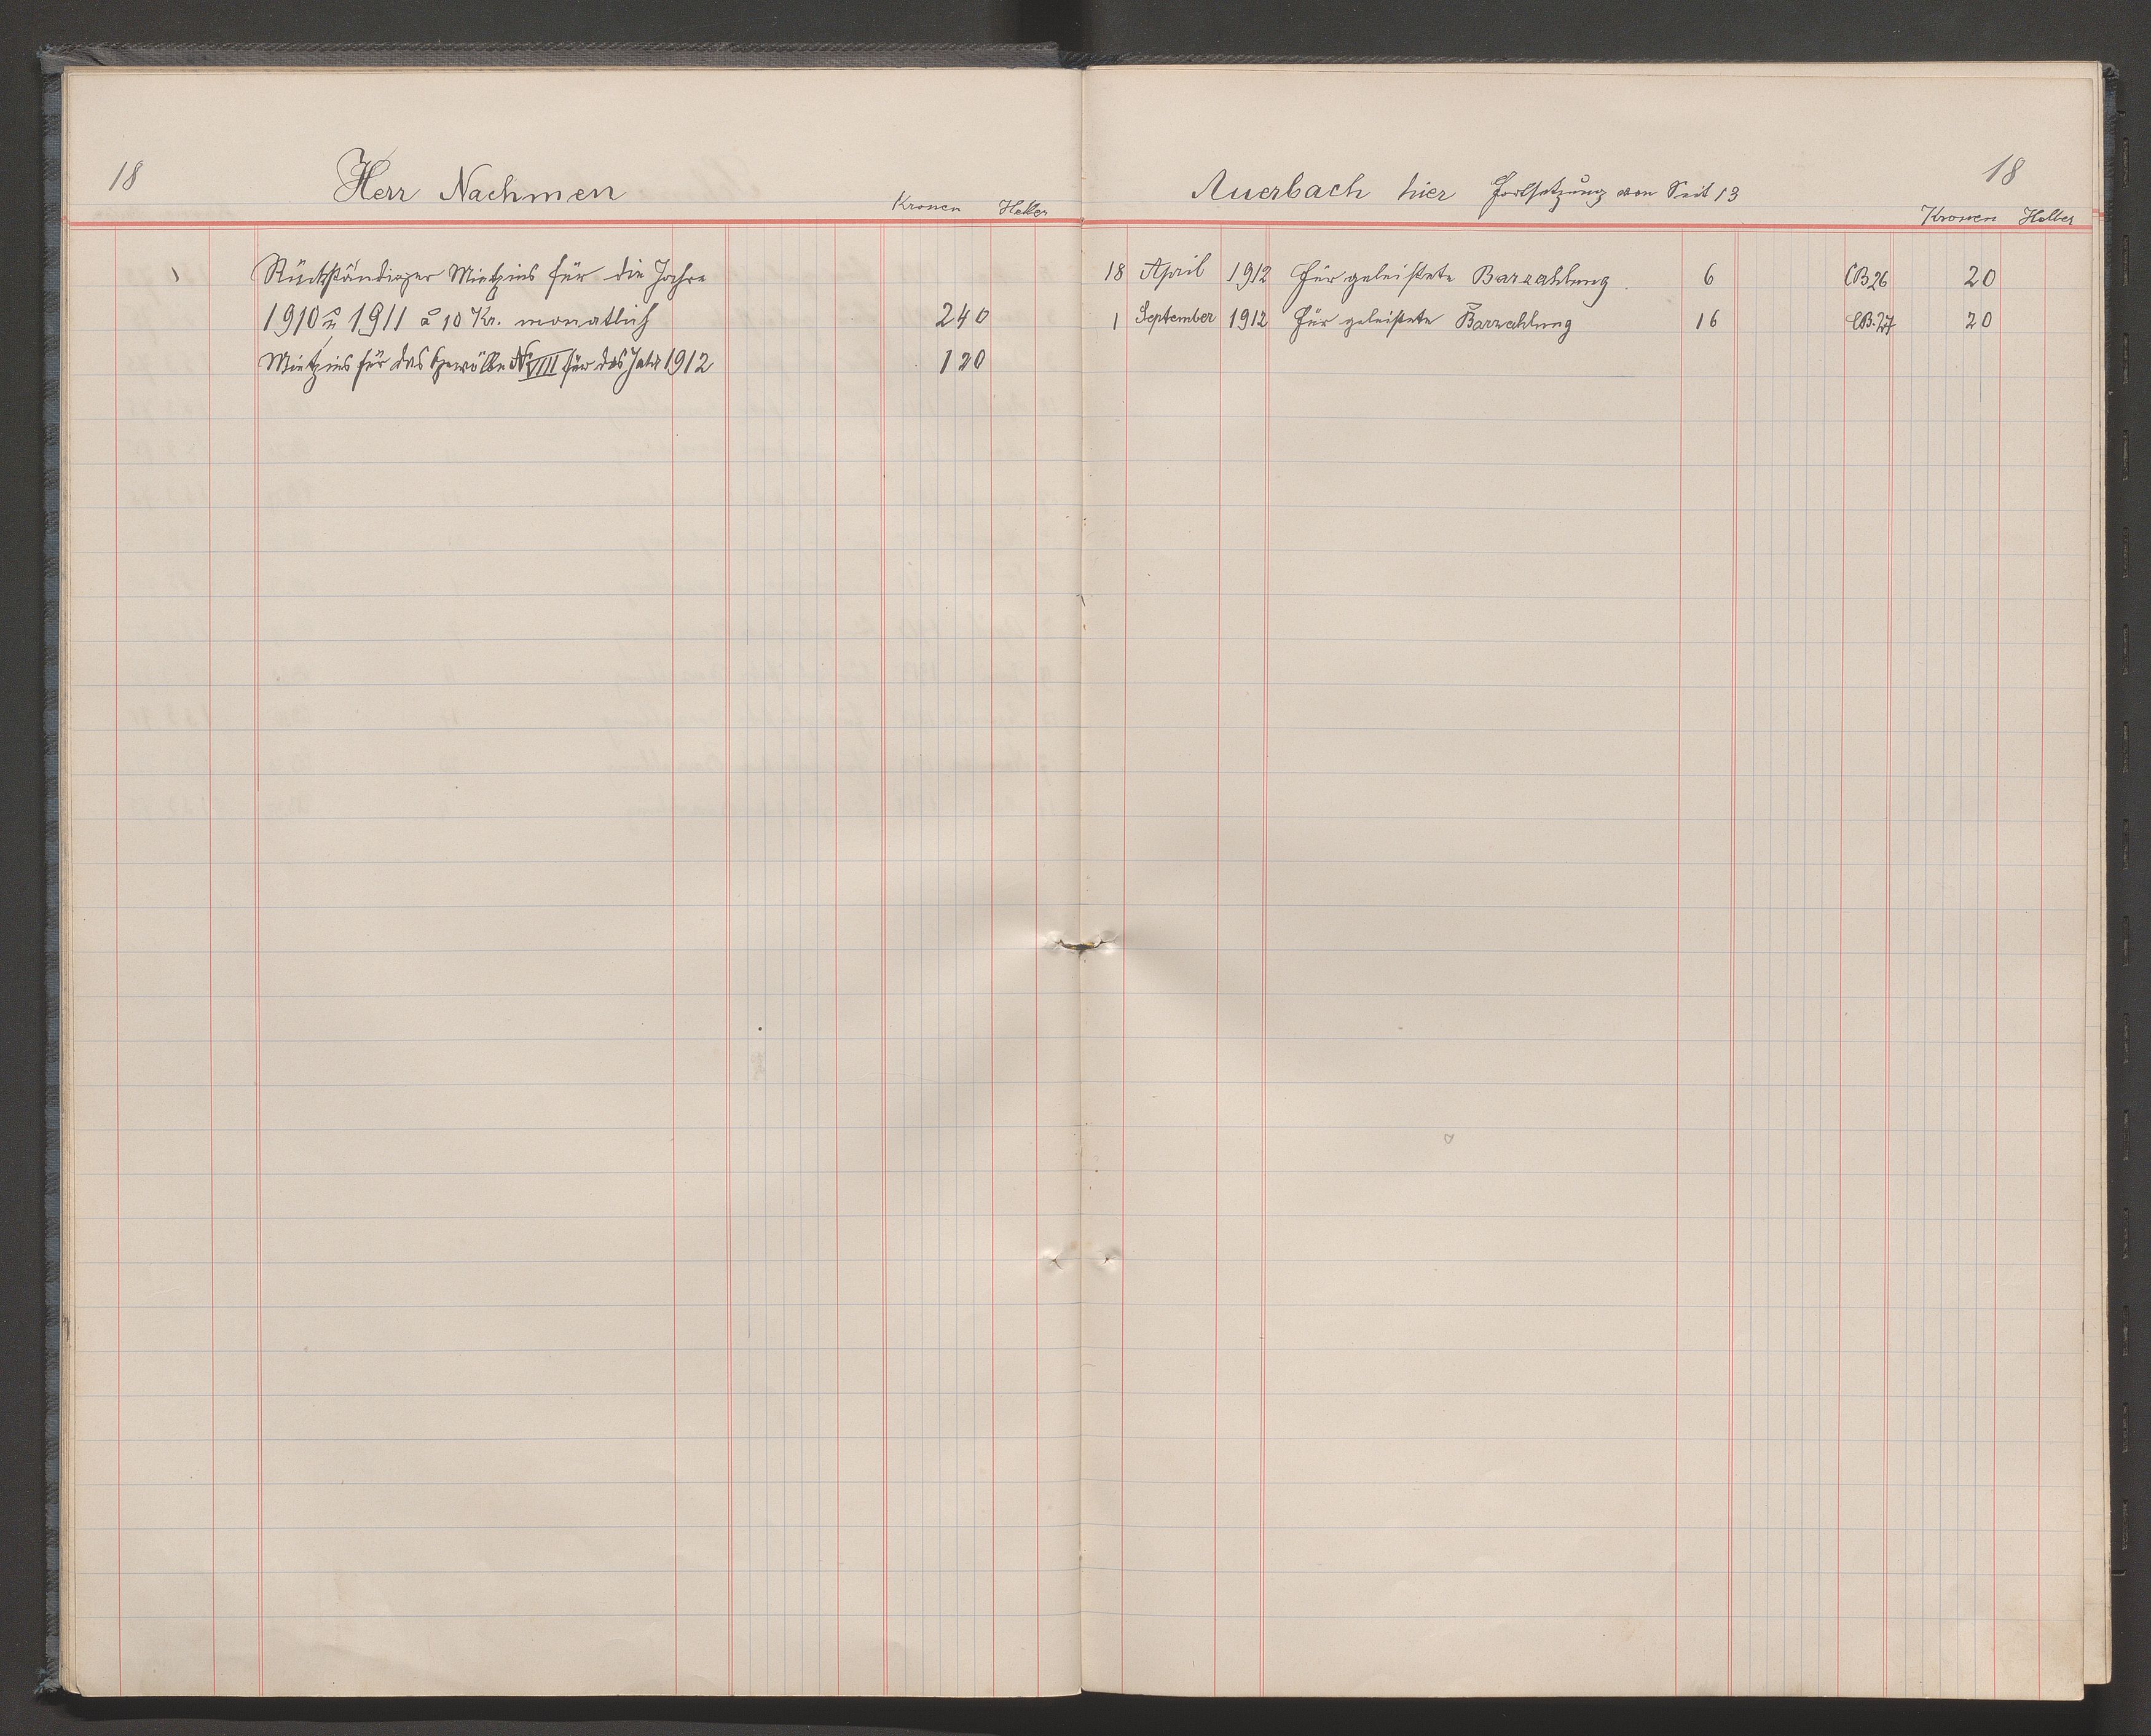 18
Herr Nachmen
Kronen Heller
Rückständiger Mietzins für die Jahre
1910 u 1911 à 10 Kr. monatlich 240
Mietzins für das Gewölbe N VIII für das Jahr 1912 120
Auerbach hier Fortsetzung von Seit 13
18
Kronen Heller
18 April 1912 Für geleistete Barzahlung 6 CB 26 20
1 September 1912 Für geleistete Barzahlung 16 CB. 27 20